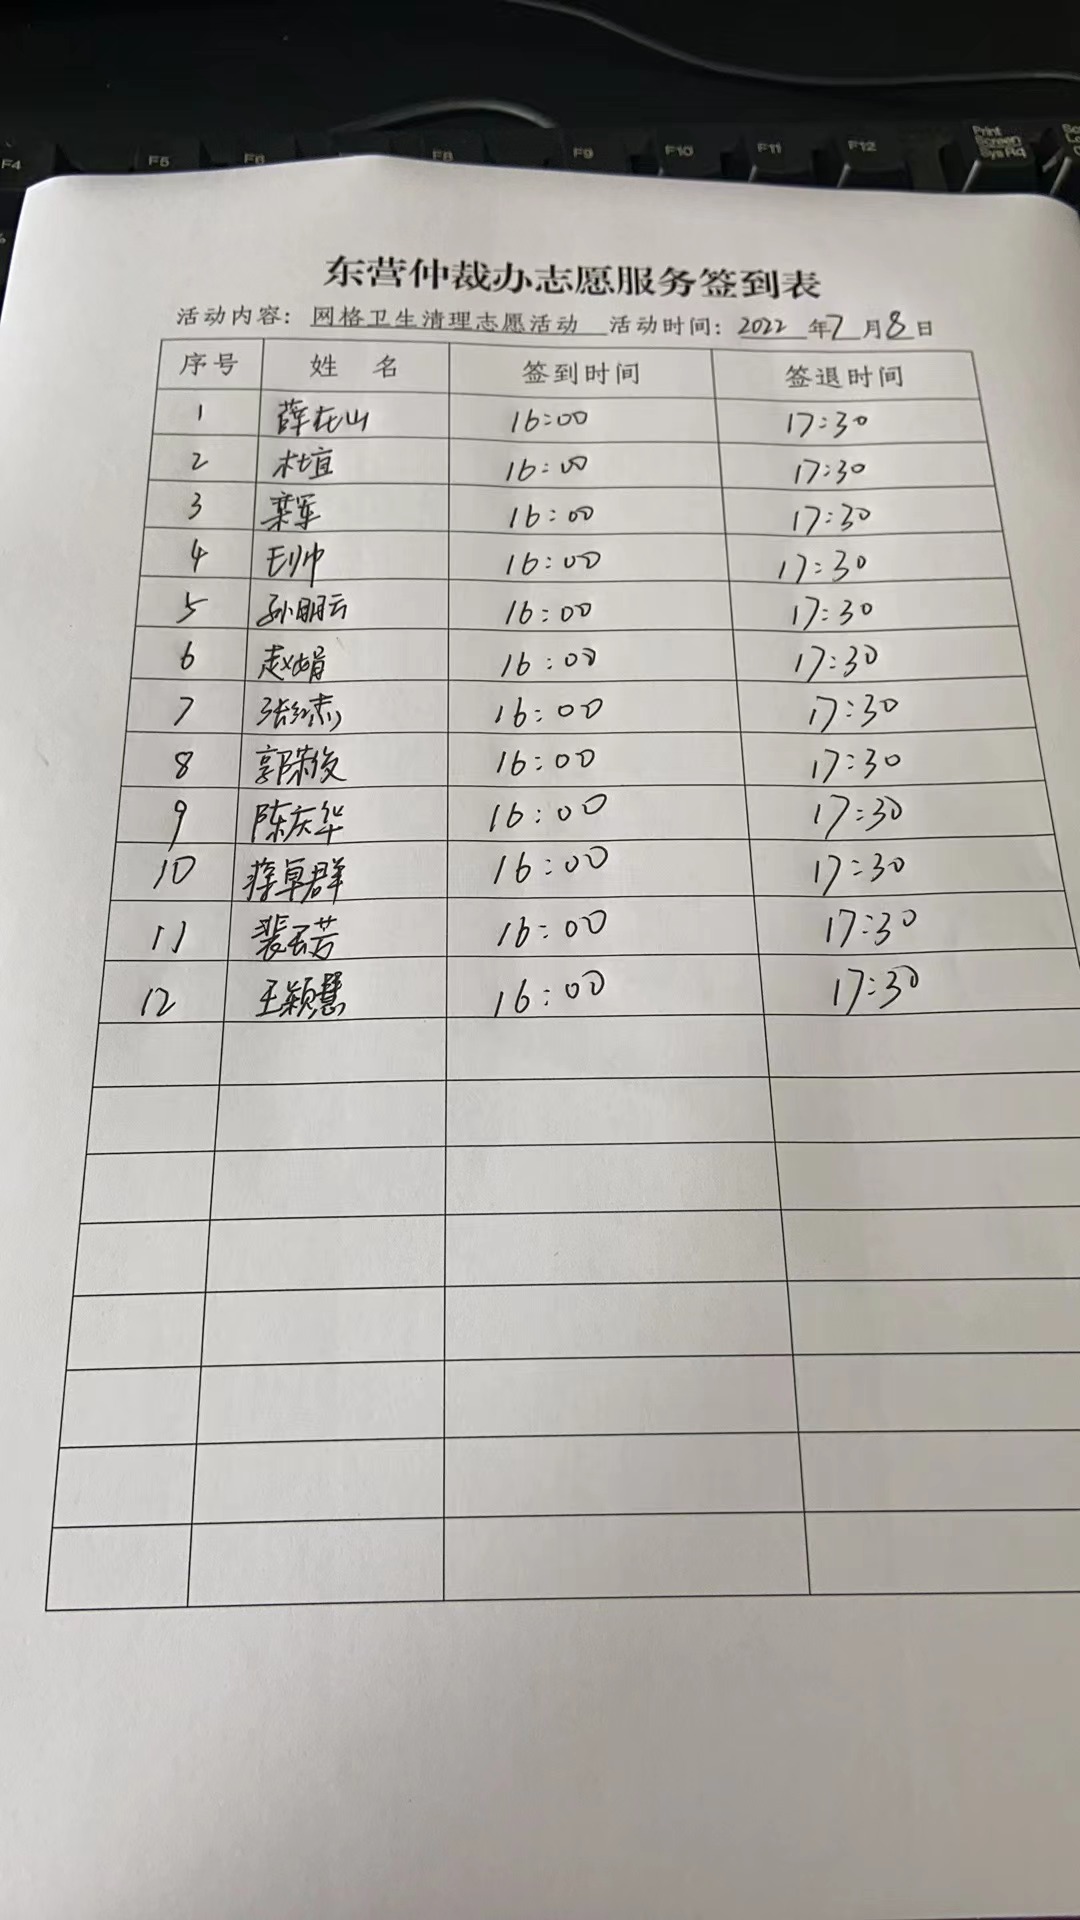 F4 F5 F6 F8 F9 F10 F11 F12 Print Screen Sys Rq
东营仲裁办志愿服务签到表
活动内容：网格卫生清理志愿活动 活动时间：2022年7月8日
序号 姓 名 签到时间 签退时间
1 薛在山 16:00 17:30
2 杜宜 16:00 17:30
3 栾军 16:00 17:30
4 王帅 16:00 17:30
5 孙明云 16:00 17:30
6 赵娟 16:00 17:30
7 16:00 17:30
8 郭荣俊 16:00 17:30
9 陈庆华 16:00 17:30
10 蒋卓群 16:00 17:30
11 裴云芳 16:00 17:30
12 王颖慧 16:00 17:30